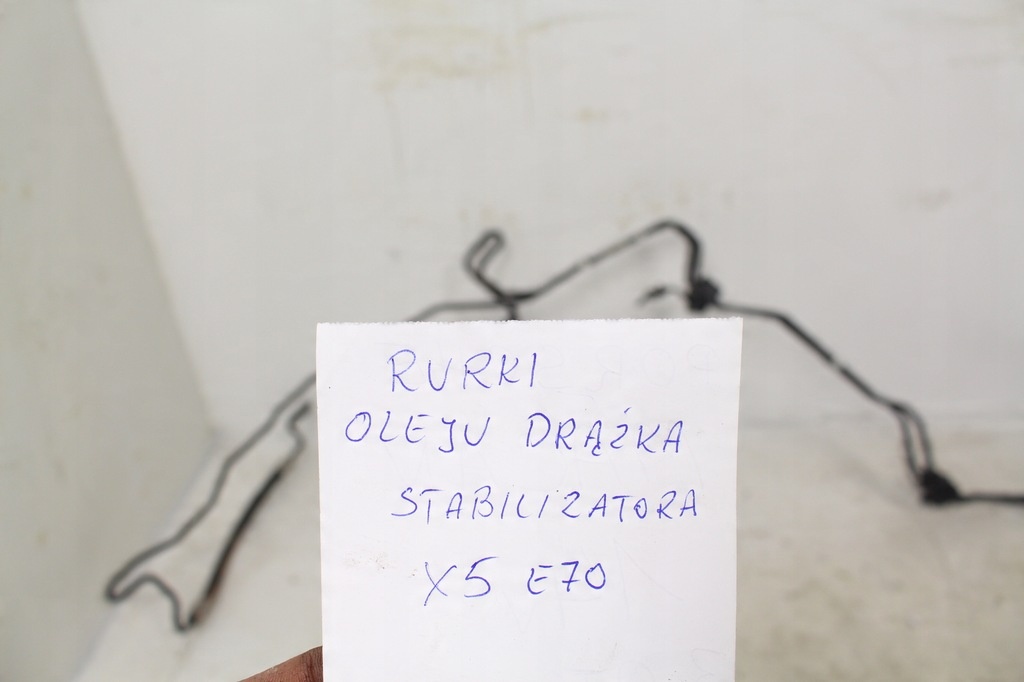 RURKI
OLEJU DRĄŻKA
STABILIZATORA
X5 E70